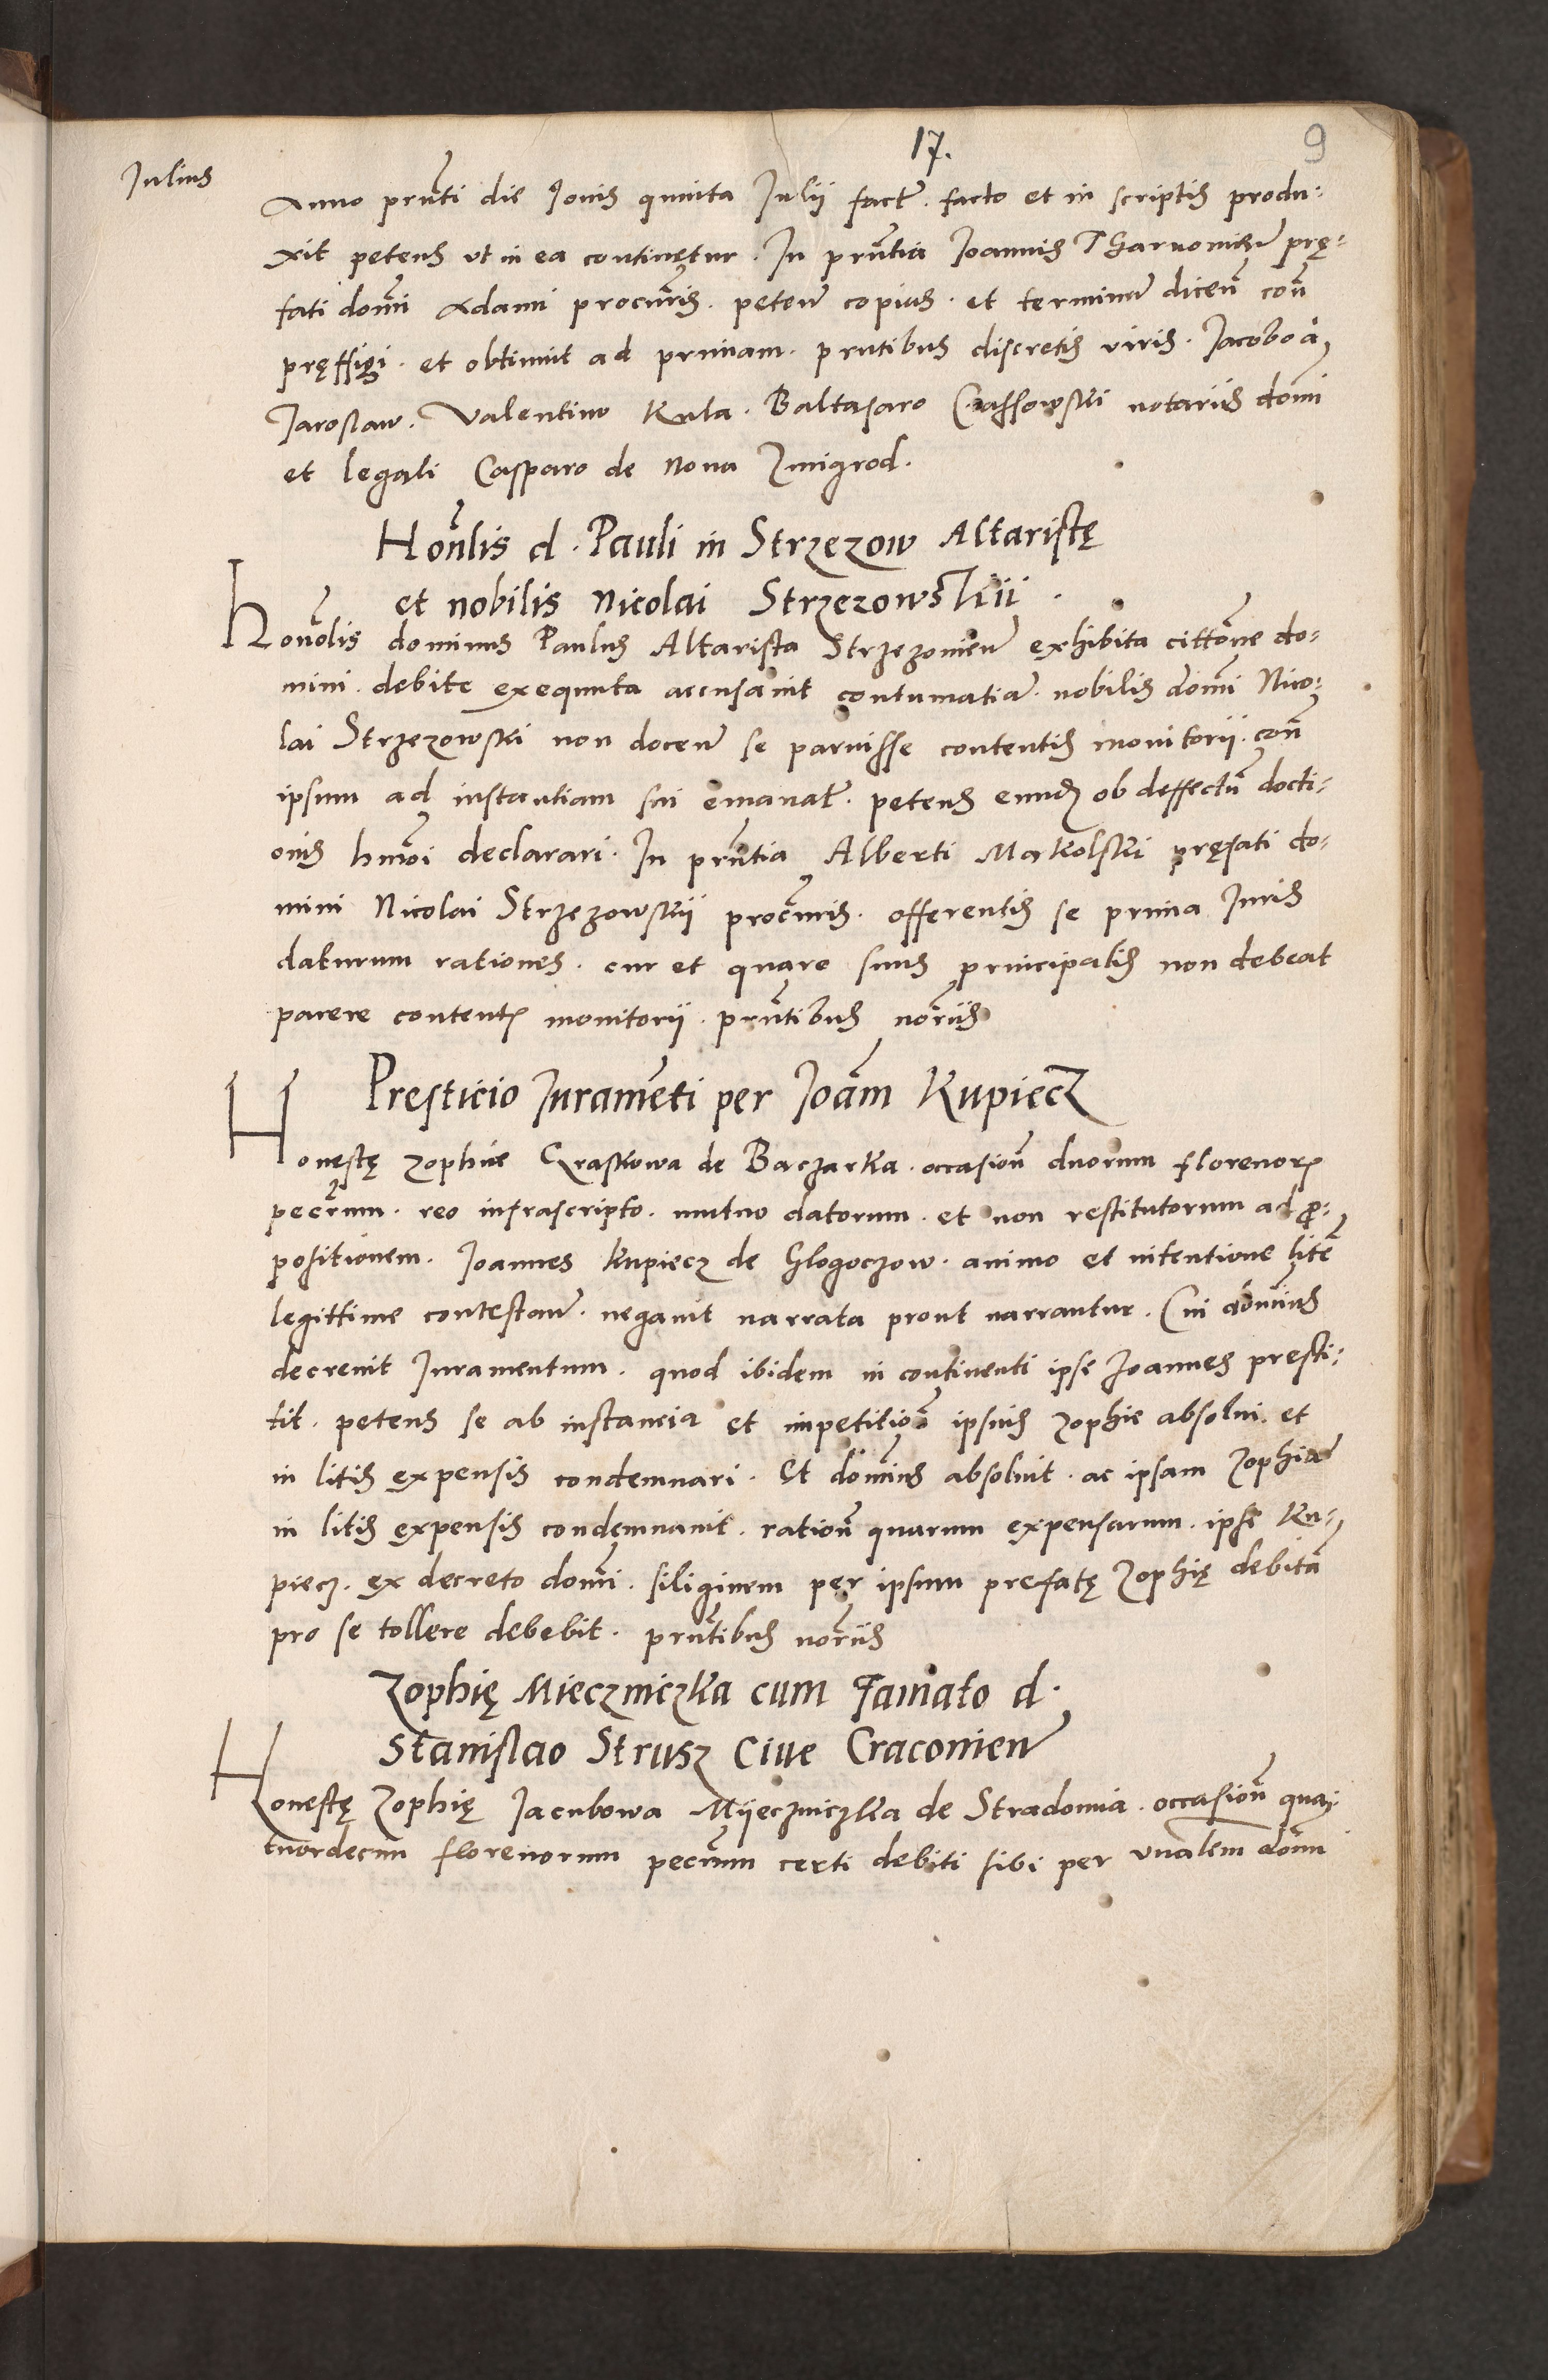 17.
9
Julius
Anno prnti die Jovis quinta Julii factam facto et in scriptis produ:
xit petens ut in ea continetur. In prntia Joannis Tharnowien prę:
fati domi Adami procuris. peten copias. et terminum dicen con
pręffigi. et obtinuit ad primam. prntibus discretis viris. Jacobo a
Jaroslaw. Valentino Kula. Baltasaro Crassowski notariis domi
et legali Casparo de Nova Zmigrod.
Honlis d. Pauli in Strzezow Altaristę
et nobilis Nicolai Strzezowskii.
Honolis dominus Paulus Altarista Strzezovien exhibita cittone do:
mini. debite exequuta accusavit contumatiam. nobilis domi Nico:
lai Strzezowski non docen se paruisse contentis monitorii. con
ipsum ad instantiam sui emanat. petens eundem ob deffectum docti:
onis hmoi declarari. In prntia Alberti Makolski pręfati do:
mini Nicolai Strzezowskii procuris. offerentis se prima Juris
daturum rationes. cur et quare suus principalis non debeat
parere contentis monitorii. prntibus noriis
Presticio Juramēti per Joām Kupiecz
Honestę Zophie Graskowa de Baczarka. occasion duorum florenorum
pecrum. reo infrascripto. mutuo datorum. et non restitutorum ad pro:
positionem. Joannes Kupiecz de Glogoczow. animo et intentione litē
legittime contestan. negavit narrata prout narrantur. Cui dominus
decrevit Juramentum. quod ibidem in continenti ipse Joannes presti:
tit. petens se ab instancia et impetitione ipsius Zophie absolvi. et
in litis expensis condemnari. Et dominus absolvit. ac ipsam Zophiam
in litis expensis condemnavit. ration quarum expensarum. ipse Ku:
piecz. ex decreto domi. siliginem per ipsum prefatę Zophię debitā
pro se tollere debebit. prntibus noriis
Zophię Mieczniczka cum Famato d.
Stanislao Strusz Cive Cracovien
Honestę Zophię Jacubowa Mijeczniczka de Stradomia. occasion qua:
tuordecim florenorum pecrum certi debiti sibi per vnalem domi